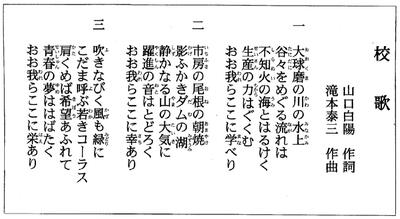 校歌
山口白陽 作詞
滝本泰三 作曲
一
大球磨の川の水上
谷々をめぐる流れは
不知火の海とはるけく
生産の力はぐくむ
おお我らここに学べり
二
市房の尾根の朝焼
影ふかきダムの湖
静かなる山の大気に
躍進の音はとどろく
おお我らここに幸あり
三
吹きなびく風も緑に
こだま呼ぶ若きコーラス
肩くめば希望あふれて
青春の夢ははばたく
おお我らここに栄あり